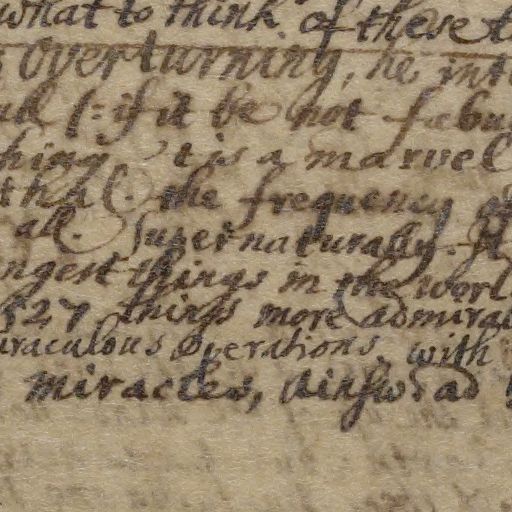 what to think of these
overturning, he int
all (: if it be not fabu
thing 't is a marvel
the frequency of
all. supernaturally. It
ngest things in the worl
527 things more admira
miraculous operations, with
miracles, Ainsw: ad